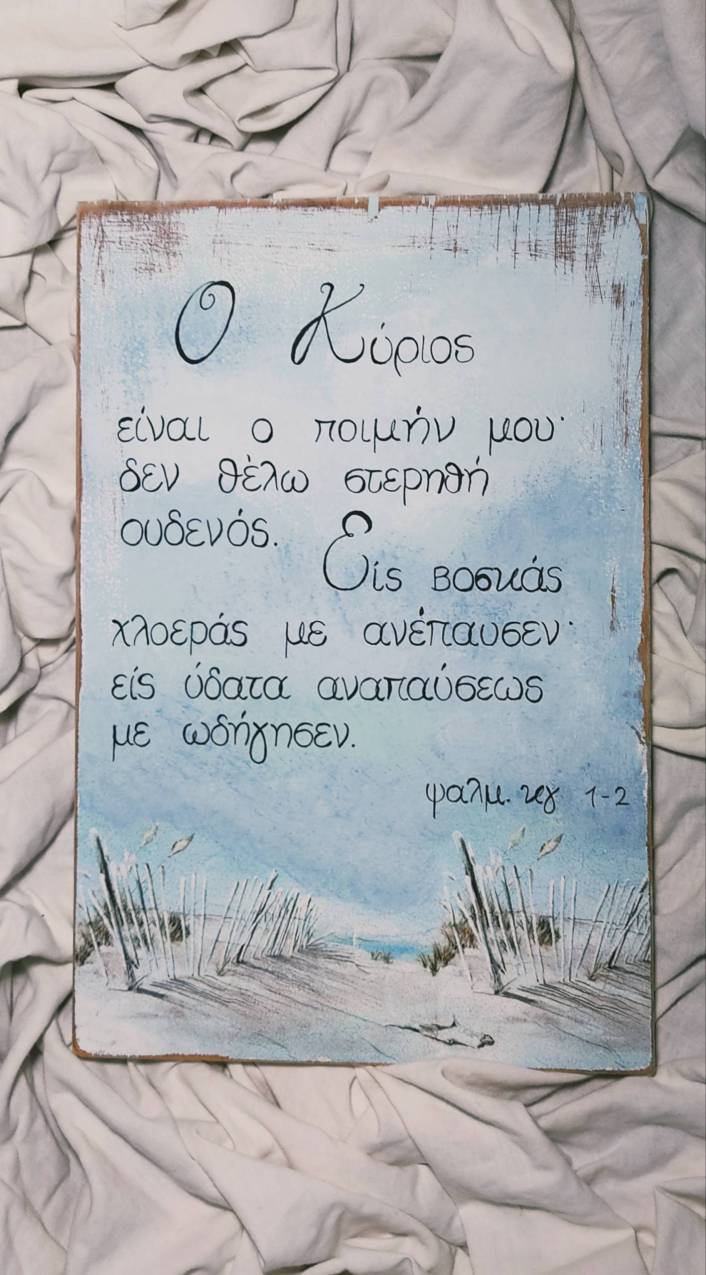 Ο Κύριος
είναι ο ποιμήν μου·
δεν θέλω στερηθή
ουδενός.
Είς βοσκάς
χλοεράς με ανέπαυσεν·
είς ύδατα αναπαύσεως
με ωδήγησεν.
ψαλμ. κγ 1-2